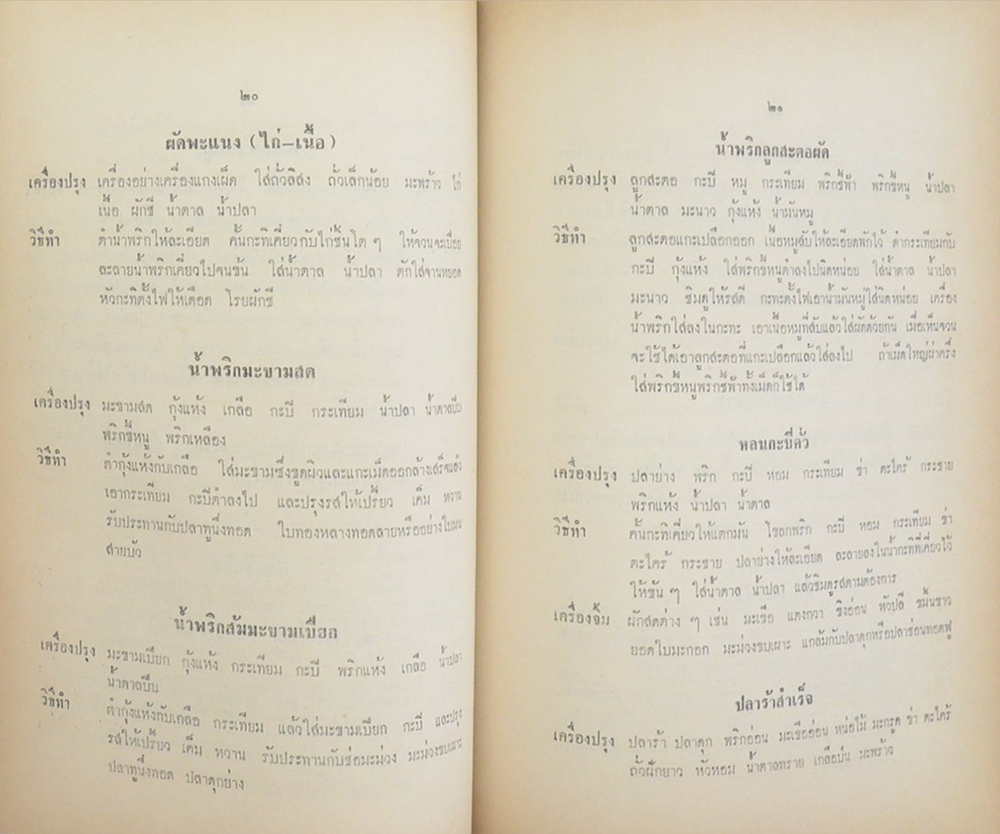 ๒๐
ผัดพะแนง (ไก่—เนื้อ)
เครื่องปรุง เครื่องอย่างเครื่องแกงเผ็ด ใส่ถั่วลิสง ถั่วเล็กน้อย มะพร้าว ไก่
เนื้อ ผักชี น้ำตาล น้ำปลา
วิธีทำ ตำน้ำพริกให้ละเอียด คั้นกะทิเคี่ยวกับไก่ชิ้นโต ๆ ให้จวนจะเปื่อย
ละลายน้ำพริกเคี่ยวไปจนข้น ใส่น้ำตาล น้ำปลา ตักใส่จานหยอด
หัวกะทิตั้งไฟให้เดือด โรยผักชี
น้ำพริกมะขามสด
เครื่องปรุง มะขามสด กุ้งแห้ง เกลือ กะปิ กระเทียม น้ำปลา น้ำตาลปีบ
พริกขี้หนู พริกเหลือง
วิธีทำ ตำกุ้งแห้งกับเกลือ ใส่มะขามซึ่งขูดผิวและแกะเม็ดออกล้างเสร็จแล้ว
เอากระเทียม กะปิตำลงไป และปรุงรสให้เปรี้ยว เค็ม หวาน
รับประทานกับปลาทูนึ่งทอด ใบทองหลางทอดลายหรืออย่างใบมน
สายบัว
น้ำพริกส้มมะขามเปียก
เครื่องปรุง มะขามเปียก กุ้งแห้ง กระเทียม กะปิ พริกแห้ง เกลือ น้ำปลา
น้ำตาลปีบ
วิธีทำ ตำกุ้งแห้งกับเกลือ กระเทียม แล้วใส่มะขามเปียก กะปิ และปรุง
รสให้เปรี้ยว เค็ม หวาน รับประทานกับช่อมะม่วง มะม่วงขบเผาะ
ปลาทูนึ่งทอด ปลาดุกย่าง
๒๑
น้ำพริกลูกสะตอผัด
เครื่องปรุง ลูกสะตอ กะปิ หมู กระเทียม พริกชี้ฟ้า พริกขี้หนู น้ำปลา
น้ำตาล มะนาว กุ้งแห้ง น้ำมันหมู
วิธีทำ ลูกสะตอแกะเปลือกออก เนื้อหมูสับให้ละเอียดพักไว้ ตำกระเทียมกับ
กะปิ กุ้งแห้ง ใส่พริกขี้หนูตำลงไปนิดหน่อย ใส่น้ำตาล น้ำปลา
มะนาว ชิมดูให้รสดี กะทะตั้งไฟเอาน้ำมันหมูใส่นิดหน่อย เครื่อง
น้ำพริกใส่ลงในกะทะ เอาเนื้อหมูที่สับแล้วใส่ผัดด้วยกัน เมื่อเห็นจวน
จะใช้ได้เอาลูกสะตอที่แกะเปลือกแล้วใส่ลงไป ถ้าเม็ดใหญ่ผ่าครึ่ง
ใส่พริกขี้หนูพริกชี้ฟ้าทั้งเม็ดก็ใช้ได้
หลนกะปิคั่ว
เครื่องปรุง ปลาย่าง พริก กะปิ หอม กระเทียม ข่า ตะไคร้ กระชาย
พริกแห้ง น้ำปลา น้ำตาล
วิธีทำ คั้นกะทิเคี่ยวให้แตกมัน โขลกพริก กะปิ หอม กระเทียม ข่า
ตะไคร้ กระชาย ปลาย่างให้ละเอียด ละลายลงในน้ำกะทิที่เคี่ยวไว้
ให้ข้น ๆ ใส่น้ำตาล น้ำปลา แล้วชิมดูรสตามต้องการ
เครื่องจิ้ม ผักสดต่าง ๆ เช่น มะเขือ แตงกวา ขิงอ่อน หัวปลี ขมิ้นขาว
ยอดใบมะกอก มะม่วงขบเผาะ แกล้มกับปลาดุกหรือปลาช่อนทอดฟู
ปลาร้าสำเร็จ
เครื่องปรุง ปลาร้า ปลาดุก พริกอ่อน มะเขืออ่อน หน่อไม้ มะกรูด ข่า ตะไคร้
ถั่วฝักยาว หัวหอม น้ำตาลทราย เกลือป่น มะพร้าว